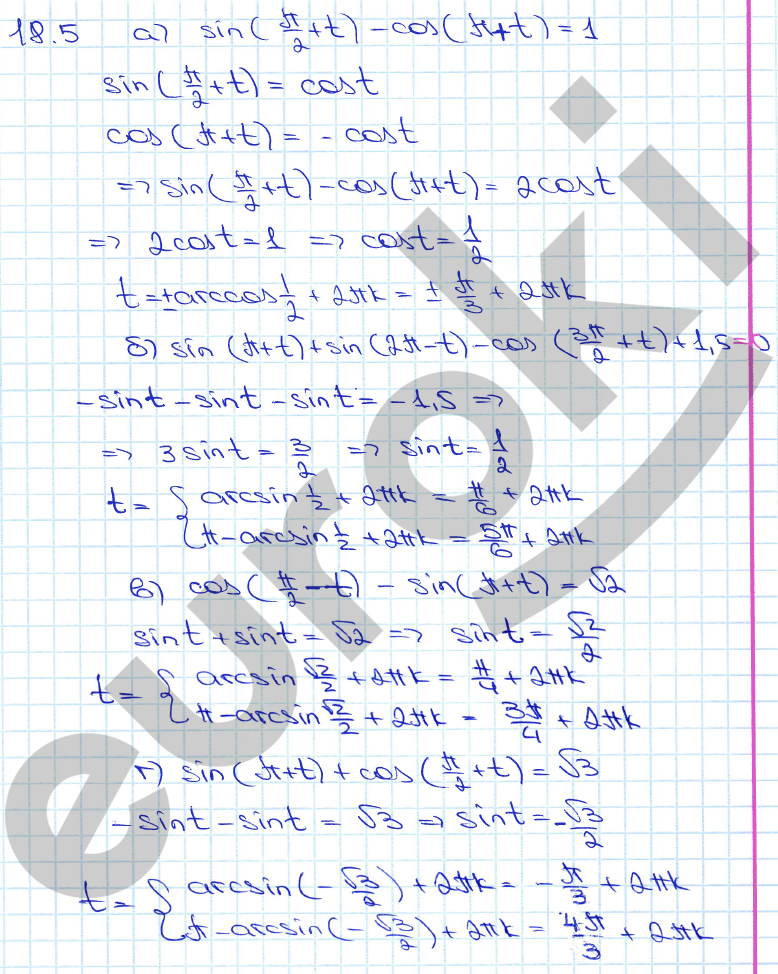 18.5 а) sin(π/2+t) -cos(π+t)=1
sin(π/2+t)= cost
cos(π+t)= - cost
=> sin(π/2+t)-cos(π+t)= 2cost
=> 2cost=1 => cost=1/2
t=±arccos 1/2 + 2πk = ± π/3 + 2πk
б) sin (π+t)+sin(2π-t)-cos (3π/2+t)+1,5=0
-sint -sint -sint = -1,5 =>
=> 3sint = 3/2 => sint= 1/2
t= { arcsin 1/2 + 2πk = π/6 + 2πk
π-arcsin 1/2 +2πk = 5π/6 + 2πk
в) cos(π/2-t) - sin(π+t) = √2
sint +sint = √2 => sint= √2/2
t= { arcsin √2/2 +2πk = π/4 + 2πk
π-arcsin √2/2 + 2πk = 3π/4 + 2πk
г) sin(π+t)+cos(π/2+t)=√3
-sint -sint = √3 => sint=-√3/2
t= { arcsin(-√3/2)+2πk= -π/3 +2πk
π-arcsin(-√3/2)+ 2πk = 4π/3 + 2πk
euroki